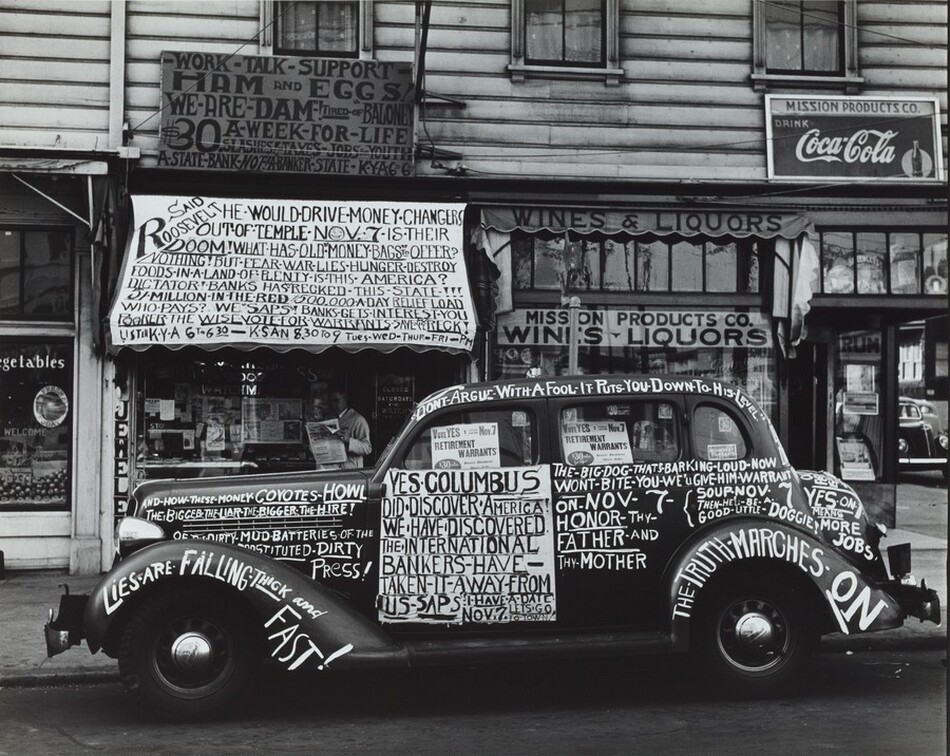 WORK-TALK-SUPPORT-
HAM AND EGGS!
WE-ARE-DAM-TIRED-OF BALONEY
$30 A-WEEK-FOR-LIFE
SLASHES-TAXES-JOBS-YOUTH
A-STATE-BANK-NOT-A-BANKER-STATE-K-Y-A 6-6
SAID
ROOSEVELT HE-WOULD-DRIVE-MONEY-CHANGERS
OUT-OF-TEMPLE-NOV-7-IS-THEIR
DOOM! WHAT-HAS-OLD-MONEY-BAGS-OFFER?
NOTHING! BUT-FEAR-WAR-LIES-HUNGER-DESTROY
FOODS-IN-A-LAND-OF-PLENTY-IS-THIS-AMERICA?
DICTATOR-BANKS HAS REGKED-THIS-STATE!!!
MILLION-IN-THE-RED 500,000-A-DAY RELIEF LOAD
WHO-PAYS? WE-SAPS! BANKS-GETS-INTEREST-YOU
THE WISE VOTE FOR WARRANTS
K-Y-A 6-6:30 — K SAN 8.30 TO 9 TUES-WED-THUR-FRI-PM
MISSION PRODUCTS CO.
DRINK
Coca-Cola
WINES & LIQUORS
MISSION PRODUCTS CO.
WINES & LIQUORS
RUM
egetables
WELCOME
JEWEL
DONT-ARGUE-WITH-A-FOOL-IT PUTS-YOU-DOWN-TO HIS-LEVEL
Vote YES on Nov 7
RETIREMENT
WARRANTS
Vote YES on Nov 7
RETIREMENT
WARRANTS
AND-HOW-THESE-MONEY COYOTES-HOWL
THE BIGGER-THE-LIAR-THE-BIGGER-THE HIRE!
DIRTY-MUD BATTERIES OF THE
DIRTY
PRESS!
LIES-ARE-FALLING-THICK and
FAST!
YES-COLUMBUS
DID-DISCOVER-AMERICA
WE-HAVE-DISCOVERED
THE INTERNATIONAL
BANKERS-HAVE-
TAKEN-IT-AWAY-FROM
US-SAPS I-HAVE-A-DATE
NOV. 7. LETS-GO
TO TOWN!
THE-BIG-DOG-THATS-BARKING-LOUD-NOW
WONT-BITE-YOU-WE'll GIVE-HIM-WARRANT
SOUP NOV-7
THEN-HE'LL-BE-A
GOOD-LITTLE-DOGGIE
ON-NOV-7-
HONOR-THY-
FATHER-AND
THY-MOTHER
YES-ON-
7 MEANS
MORE
JOBS!
THE-TRUTH-MARCHES-ON